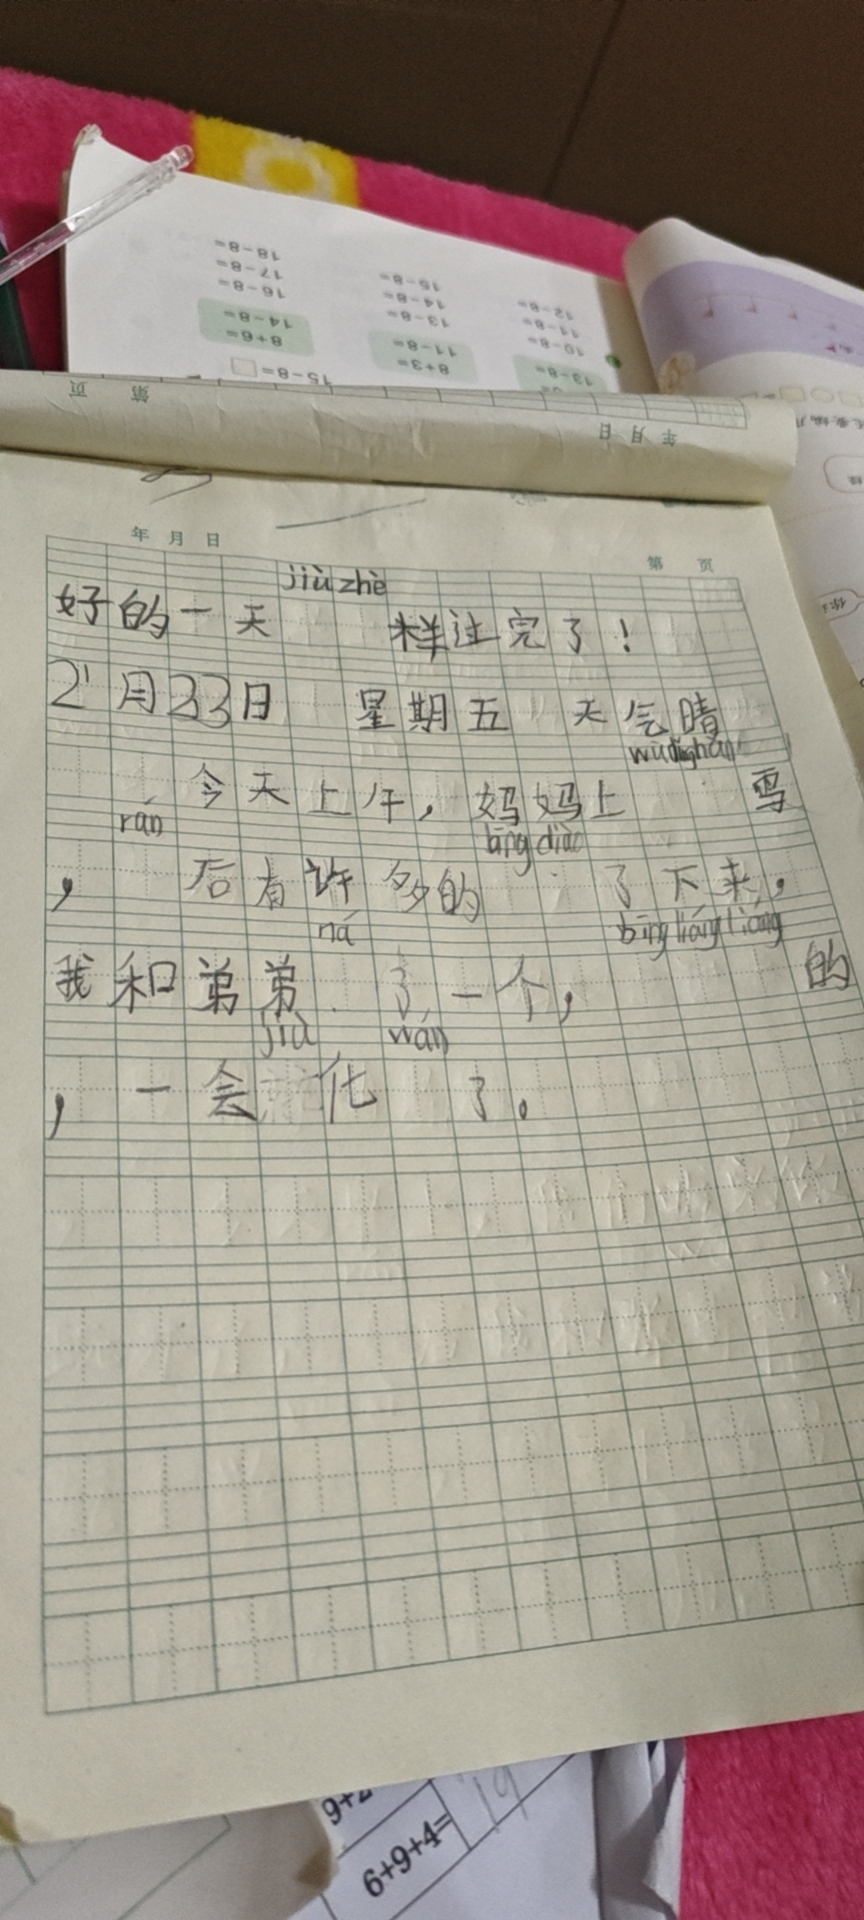 18-8=
17-8=
16-8=
14-8=
8+6=
15-8=
14-8=
13-8=
11-8=
8+3=
12-8=
11-8=
10-8=
13-8=
15-8=
第 页
年 月 日
年 月 日
第 页
jiù zhè
好的一天 样过完了!
2月23日 星期五 天气晴
wū dǐng hán
今天上午,妈妈上 雪
rán bīng diào
, 后有许多的 了下来,
ná bīng liáng liáng
我和弟弟 了一个, 的
jiù wán
,一会 化 了。
6+9+4=
19